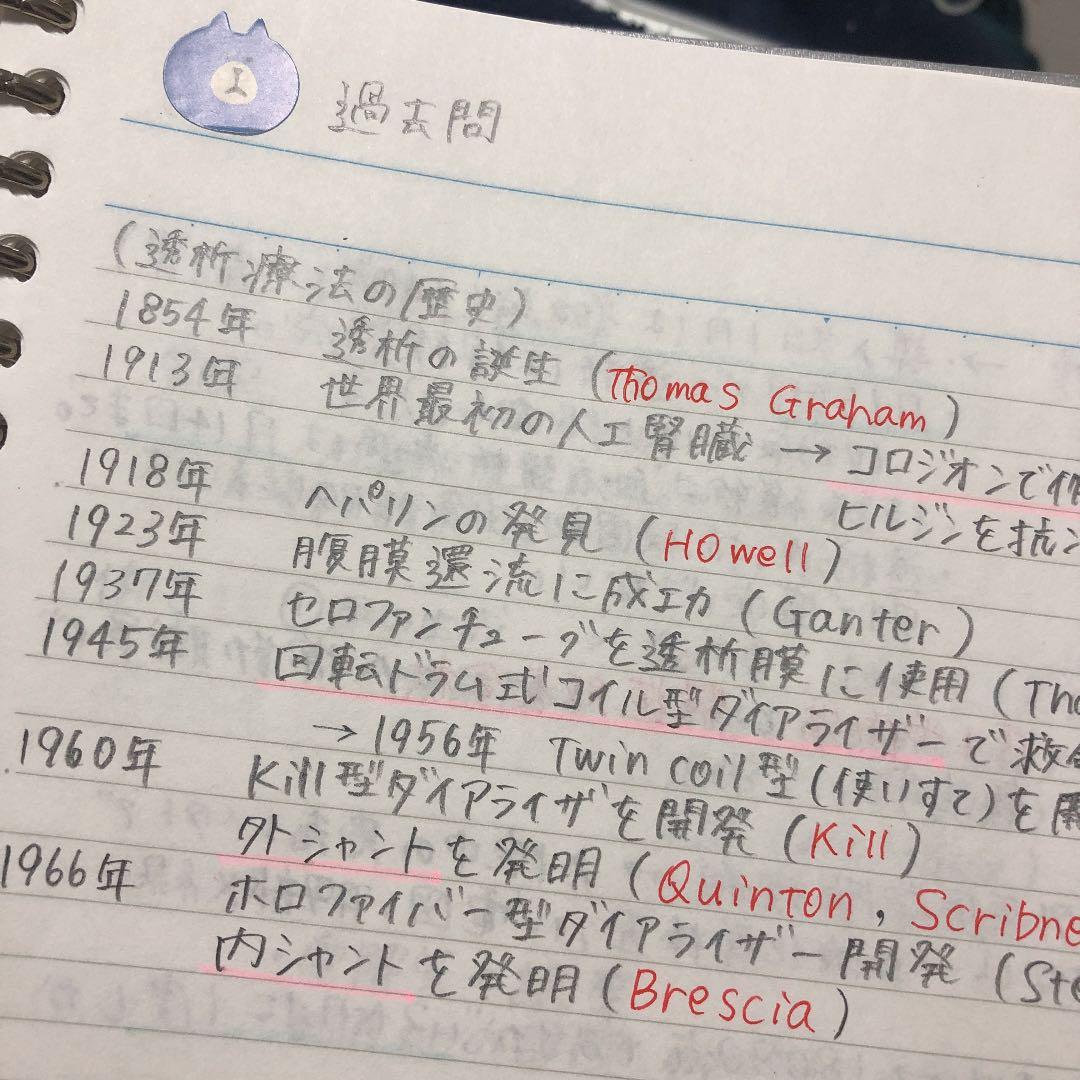 過去問
(透析療法の歴史)
1854年 透析の誕生 (Thomas Graham)
1913年 世界最初の人工腎臓 → コロジオンで
ヒルジンを抗
1918年 ヘパリンの発見 (Howell)
1923年 腹膜還流に成功 (Ganter)
1937年 セロファンチューブを透析膜に使用 (Tha
1945年 回転ドラム式コイル型ダイアライザーで救命
→ 1956年 Twin coil型(使いすて)を開
1960年 Kill型ダイアライザを開発 (Kill)
外シャントを発明 (Quinton, Scribne
1966年 ホロファイバー型ダイアライザー開発 (Ste
内シャントを発明 (Brescia)